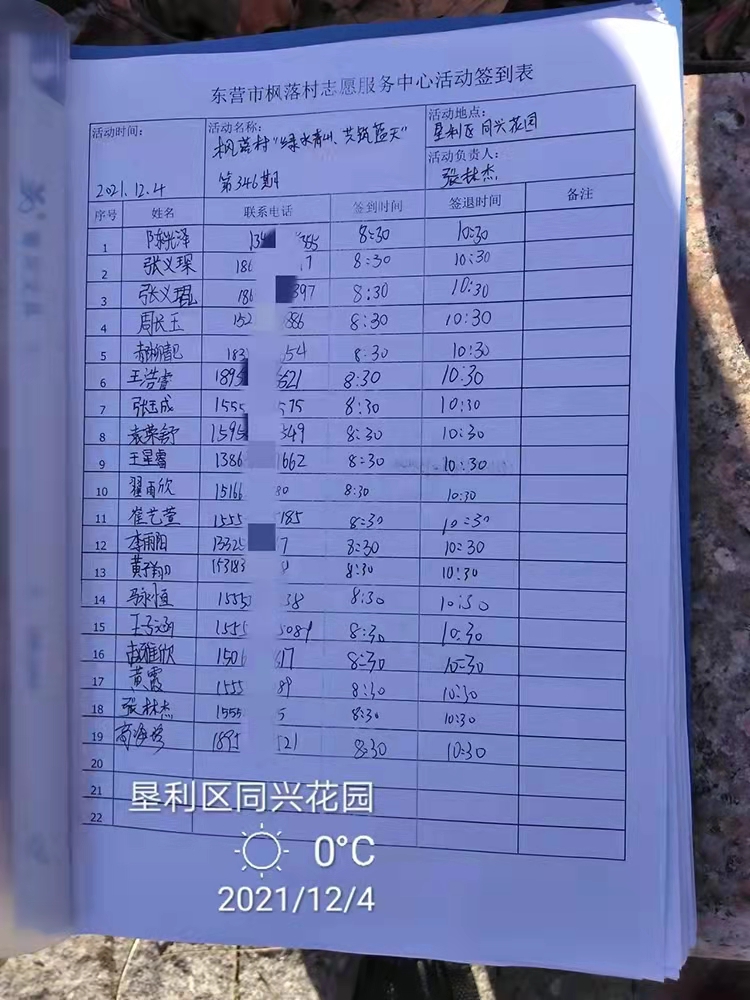 东营市枫落村志愿服务中心活动签到表
活动时间: 活动名称: 活动地点:
枫落村"绿水青山、共筑蓝天" 垦利区同兴花园
活动负责人:
2021.12.4 第346期 张林杰
序号 姓名 联系电话 签到时间 签退时间 备注
1 陈光泽 8:30 10:30
2 张义琛 186 7 8:30 10:30
3 张义琨 18 397 8:30 10:30
4 周长玉 152 886 8:30 10:30
5 183 54 8:30 10:30
6 王浩睿 1895 621 8:30 10:30
7 张玉成 1555 575 8:30 10:30
8 袁荣舒 1595 549 8:30 10:30
9 王星睿 1386 1662 8:30 10:30
10 翟雨欣 15166 80 8:30 10:30
11 崔艺萱 1555 185 8:30 10:30
12 李雨阳 13325 7 8:30 10:30
13 153183 8:30 10:30
14 马永恒 1555 38 8:30 10:30
15 1555 5089 8:30 10:30
16 赵雅欣 150 17 8:30 10:30
17 黄霞 1555 89 8:30 10:30
18 张林杰 1555 5 8:30 10:30
19 1895 521 8:30 10:30
20
21
22
垦利区同兴花园
0°C
2021/12/4